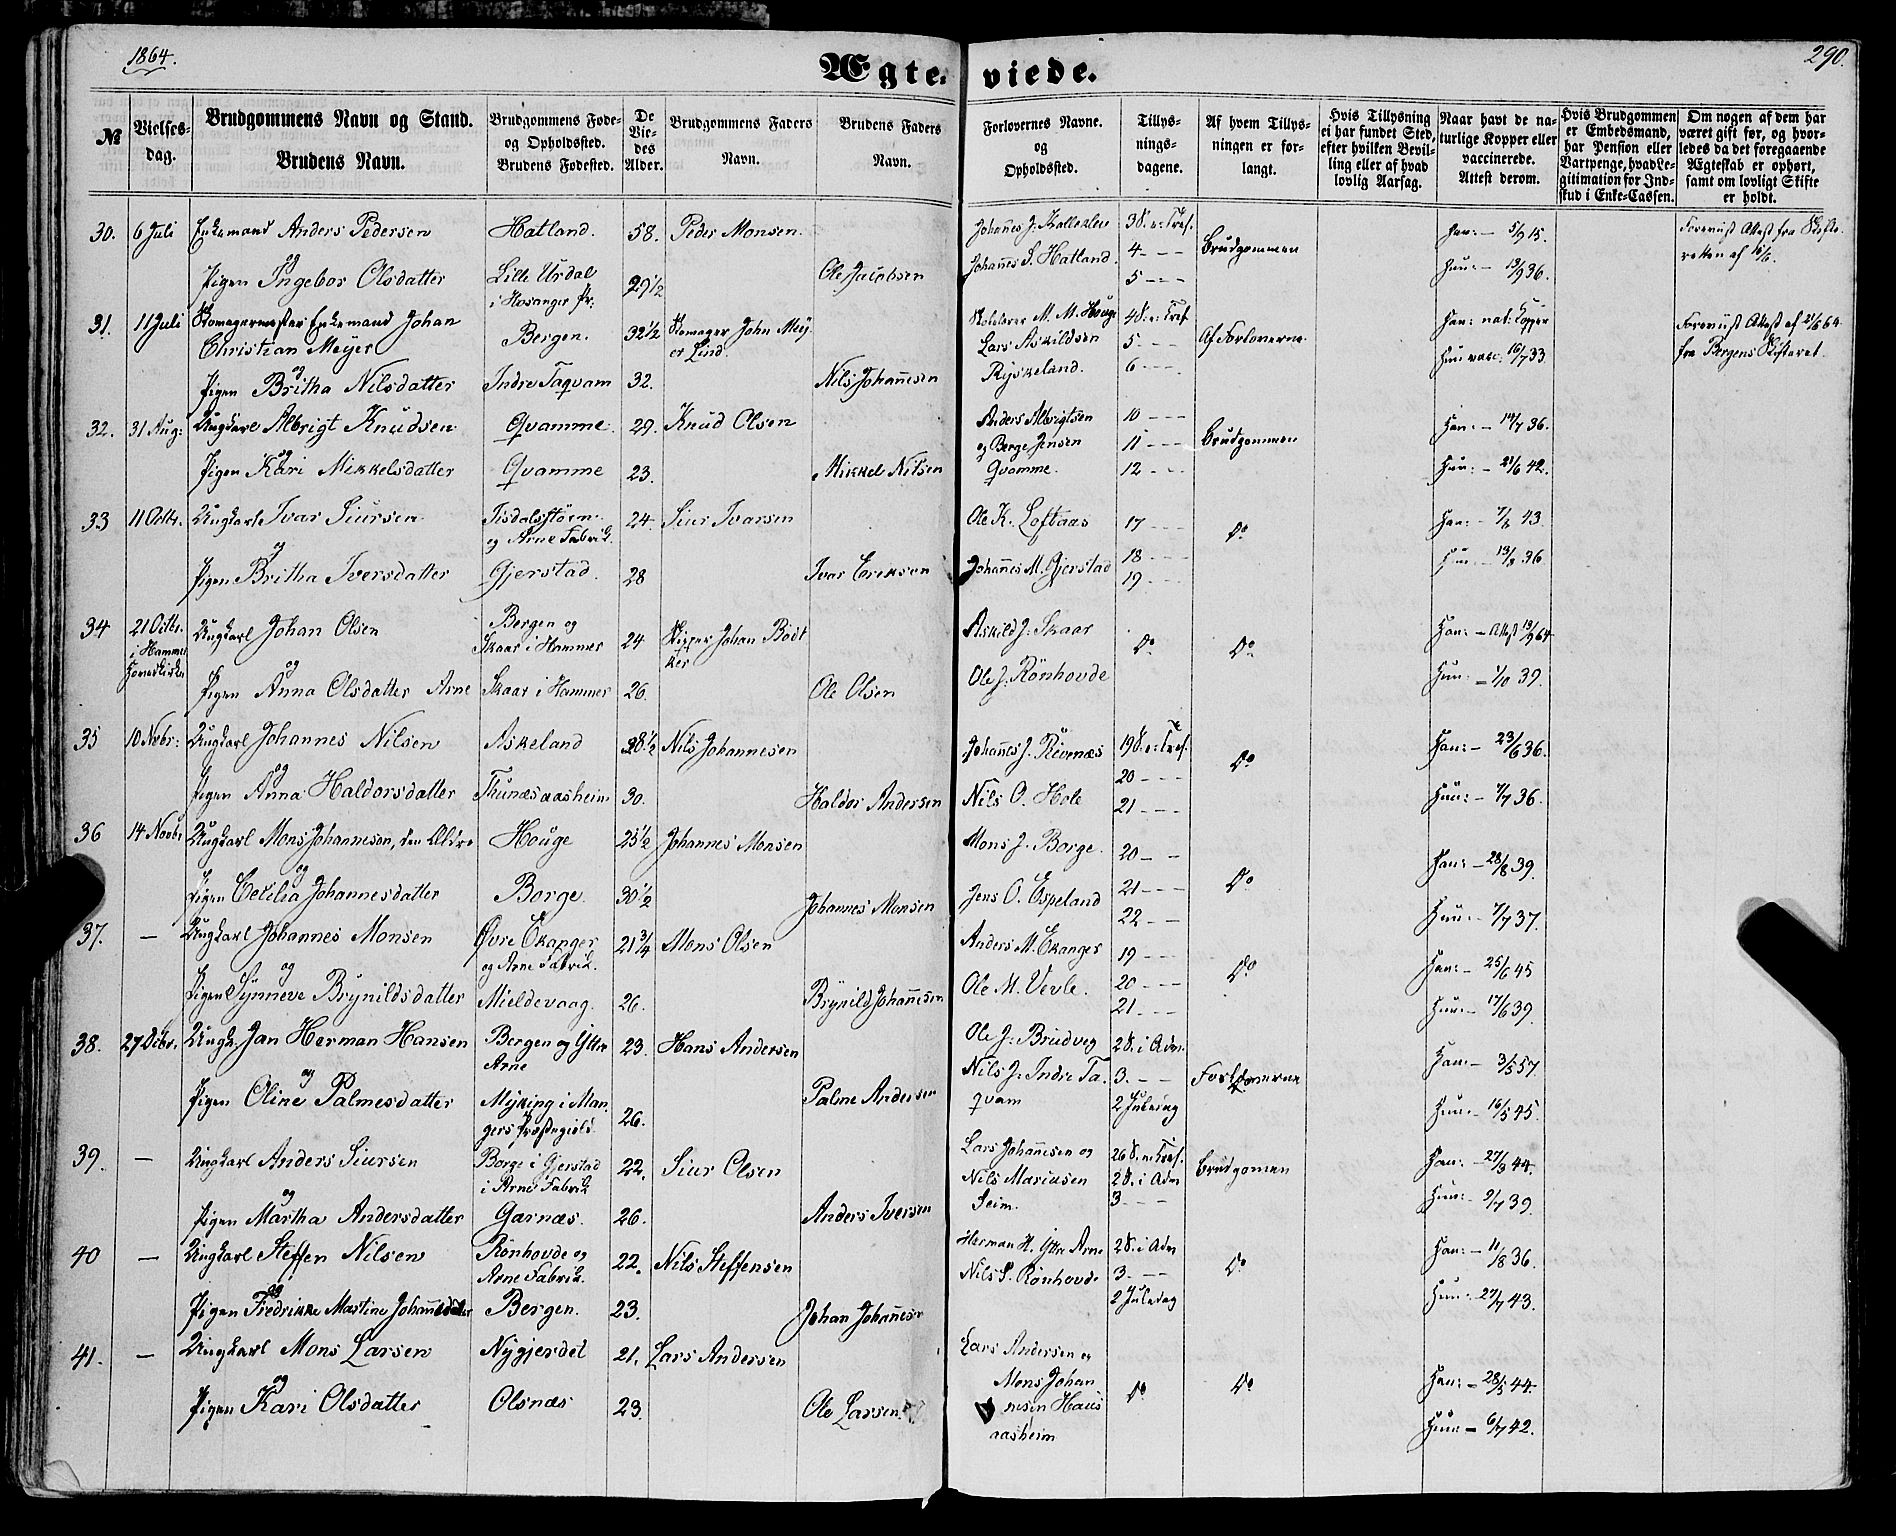 1864.
290.
Ægte-viede.
№
Vielses-dag.
Brudgommens Navn og Stand.
Brudens Navn.
Brudgommens Føde- og Opholdssted.
Brudens Fødested.
De Vie-des Alder.
Brudgommens Faders Navn.
Brudens Faders Navn.
Forlovernes Navne. og Opholdssted.
Tillys-nings-dagene.
Af hvem Tillys-ningen er for-langt.
Hvis Tillysning ei har fundet Sted, efter hvilken Bevil-ling eller af hvad lovlig Aarsag.
Naar havt de na-turlige Kopper eller vaccinerede. Attest derom.
Hvis Brudgommen er Embedsmand, har Pension eller Vartpenge, hvad Le-gitimation for Ind-skud i Enke-Cassen.
Om nogen af dem har været gift før, og hvor-ledes da det foregaaende Ægteskab er ophørt, samt om lovligt Skifte er holdt.
30. 6 Juli Enkemand Anders Pedersen Hatland. 58. Peder Monsen. Johannes J. Kalleklev 3 S. e: Tref. Brudgommen Han: – 5/9 15. Foreviist Attest fra Skifte-retten af
og
Pigen Ingebor Olsdatter Lille Urdal i Hosanger Pr: 29 1/2 Ole Jacobsen Johannes S. Hatland 4 – – 5 – – Hun: – 13/9 36.
31. 11 Juli Skomagermester Enkemand Johan Christian Meyer Bergen. 32 1/2 Skomager John Mey er Lind. Skolelærer M. M. Houge 4 S. e: Tref. Af Forloverne Han: nat: Kopper Foreviist Attest af 21/6 64 fra Bergens Skifteret.
og
Pigen Britha Nilsdatter Indre Taqvam 32. Nils Johannesen Lars Askildsen Ryskeland. 5 – – 6 – – Hun vacc. 16/7 33
32. 31 Aug: Ungkarl Albrigt Knudsen Qvamme. 29. Knud Olsen Anders Albrigtsen 10 – – Brudgommen Han: – 14/7 36.
og
Pigen Kari Mikkelsdatter Qvamme 23. Mikkel Nilsen og Berge Jensen Qvamme. 11 – – 12 – – Hun: – 21/6 42.
33 11 Octbr. Ungkarl Ivar Siursen Tisdalsstøen og Arne Fabrik. 24. Siur Ivarsen Ole K. Loftaas 17 – – Do Han: – 7/8 43.
og
Pigen Britha Iversdatter Gjerstad. 28 Ivar Eriksen Johannes M. Gjerstad 18 – – 19 – – Hun: – 13/8 36
34 21 Octbr. i Hammer Hovedkirke Ungkarl Johan Olsen Bergen og Skaar i Hammer 24 Skipper Johan Bødt ker Askild J. Skaar Do Do Han: – Attest 13/9 64
og
Pigen Anna Olsdatter Arne Skaar i Hammer 26. Ole Olsen Ole J. Rönhovde Hun: – 1/10 39.
35 10 Novbr: Ungkarl Johannes Nilsen Askeland 28 1/2 Nils Johannesen Johannes J. Revenæs 19 S. e: Tref. Do Han: – 23/6 36.
og
Pigen Anna Haldorsdatter Thunæsaasheim 30. Haldor Andersen Nils O. Hole 20 – – 21 – – Hun: – 7/7 36.
36 14 Novbr Ungkarl Mons Johannesen, den Ældre Houge 25 1/2 Johannes Monsen Mons J. Borge. 20 – – Do Han: – 28/8 39.
og
Pigen Cecilia Johannesdatter Borge. 30 1/2 Johannes Monsen Jens O. Espeland 21 – – 22 – – Hun: – 7/7 37.
37. – Ungkarl Johannes Monsen Øvre Ekanger og Arne Fabrik. 21 3/4 Mons Olsen Anders M. Ekanger 19 – – Do Han: – 25/6 45
og
Pigen Synneve Brynildsdatter Mieldevaag. 26. Brynild Johannesen Ole M. Vevle. 20 – – 21 – – Hun: – 17/6 39.
38. 27 Decbr. Ungk. Jan Herman Hansen Bergen og Yttre Arne 23. Hans Andersen Ole J. Brudvig 2 S. i Adv. Forloverne Han: – 3/5 57
og
Pigen Oline Palmesdatter Myking i Man gers Præstegield. 26. Palme Andersen Nils J. Indre Ta qvam 3. – – 2 Juledag Hun: – 16/5 45.
39. – Ungkarl Anders Siursen Borge i Gjerstad i Arne Fabrik 22. Siur Olsen Lars Johannesen og 26 S. e. Tref. Brudgommen Han: – 27/9 44.
og
Pigen Martha Andersdatter Garnæs. 26. Anders Iversen Nils Mariusen Seim. 2 S. i Adv 3 – – Hun: – 9/7 39.
40 – Ungkarl Steffen Nilsen Rönhovde og Arne Fabrik. 22. Nils Steffensen Herman H. Yttre Arne 2 S. i Adv Do Han: – 11/8 36.
og
Pigen Fredrikke Martine Johannesdatter Bergen. 23. Johan Johannesen Nils S. Rönhovde 3. – – 2 Juledag Hun: – 27/7 43.
41. – Ungkarl Mons Larsen Nygjerdet 21. Lars Andersen Lars Andersen og Do Do Han: – 28/5 44.
og
Pigen Kari Olsdatter Olsnæs 23. Ole Larsen Mons Johan nesen Haus aasheim Hun: – 6/7 42.